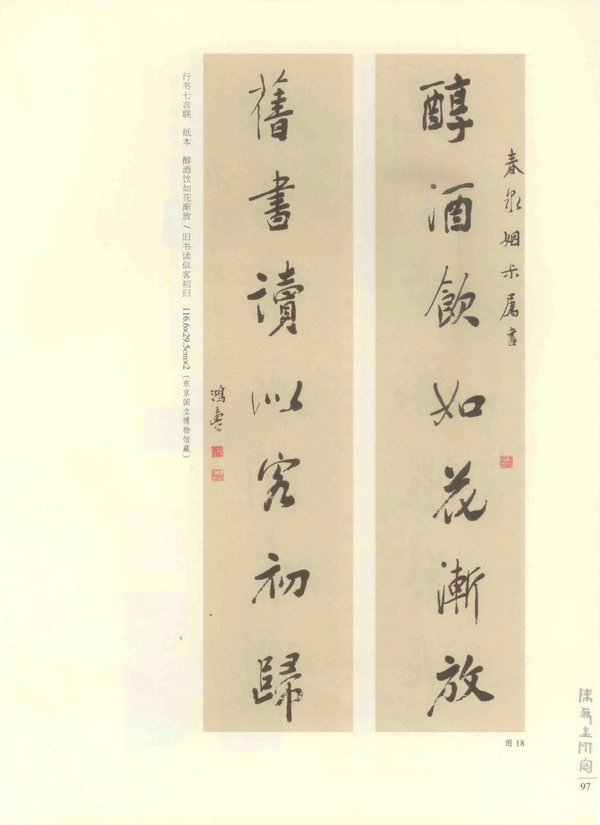 春泉姻未屬書
醇酒飲如花漸放
舊書讀似客初歸
鴻壽
行书七言联 纸本 醇酒饮如花渐放/旧书读似客初归 116.6×29.5cm×2（东京国立博物馆藏）
图 18
97